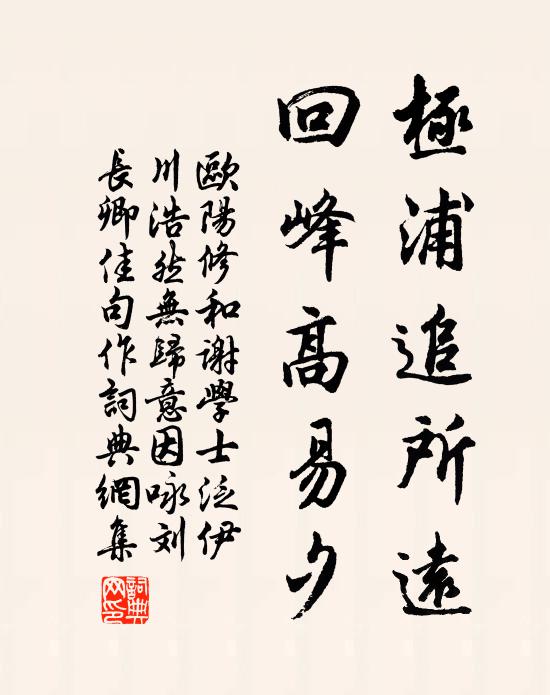 極浦追所遠
回峰高易夕
歐陽修和謝學士泛伊
川浩然無歸意因咏刘
長卿佳句作詞典網集
詞典
网印